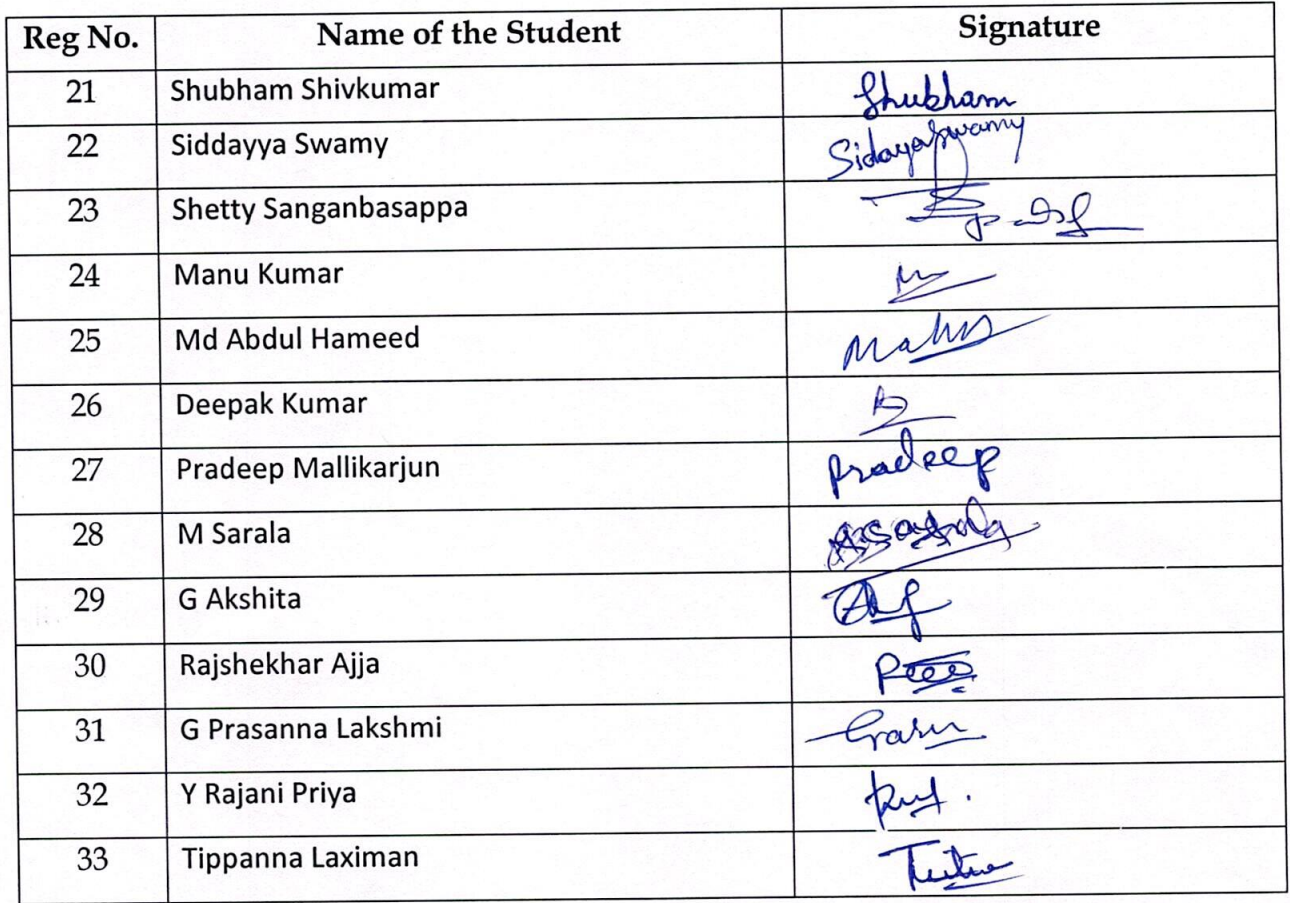 Reg No. Name of the Student Signature
21 Shubham Shivkumar Shubham
22 Siddayya Swamy Sidayaswamy
23 Shetty Sanganbasappa
24 Manu Kumar
25 Md Abdul Hameed
26 Deepak Kumar
27 Pradeep Mallikarjun Pradeep
28 M Sarala
29 G Akshita
30 Rajshekhar Ajja
31 G Prasanna Lakshmi
32 Y Rajani Priya
33 Tippanna Laximan